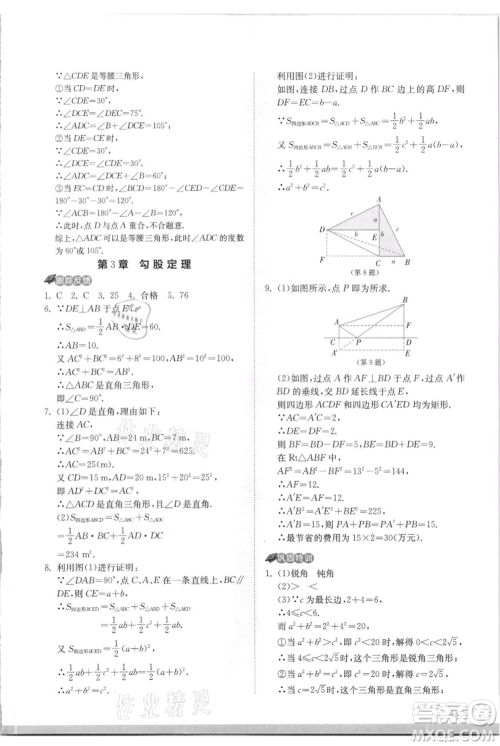 ∵△CDE是等腰三角形,
①当CD=CE时,
∵∠CDE=30°,
∴∠DCE=∠DEC=75°.
∴∠ADC=∠B+∠DCE=105°;
②当CD=DE时,
∵∠CDE=30°,
∴∠DCE=∠DEC
∴∠ADC=∠B+∠DCE=
③当EC=CD时,
∠BCD=180°-∠CED-∠CDE=
180°-30°-30°=120°.
∵∠ACB=180°-∠A-∠B=120°,
∴此时,点D与点A重合,不合题意.
综上,△ADC可以是等腰三角形,此时∠ADC的度数
为60°或105°.
第3章 勾股定理
1. C 2. C 3. 25 4. 合格 5. 76
6. ∵DE⊥AB于点D,
∴S△ABE=1/2 AB·DE=60.
∴AB=10.
又AC²+BC²=6²+8²=10², AB²=10²=100,
∴AC²+BC²=AB².
∴△ABC是直角三角形.
7. (1)△ACD是直角三角形,理由如下:
连接AC,
∵∠B=90°,AB=24m,BC=7m,
∴AC²=AB²+BC²=24²+7²=625.
∴AC=25(m).
又CD=15m,AD=20m,15²+20²=25²,
即AD²+DC²=AC²,
∴△ACD是直角三角形.
(2)S四边形ABCD=S△ABC+S△ADC
=1/2 AB·BC+1/2 AD·CD
=234 m².
8. 利用图(1)进行证明:
∵∠DAB=90°,点C,A,E在一条直线上,BC∥
DE,则CE=a+b.
∵S四边形BCED=S△ABC+S△ABD+S△AED
=1/2 ab+1/2 c²+1/2 ab,
又S四边形BCED=1/2 (a+b)²,
∴1/2 ab+1/2 c²+1/2 ab=1/2 (a+b)².
∴a²+b²=c².
利用图(2)进行证明:
如图,连接DB,过点D作BC边上的高DF,则
DF=EC=b-a.
∵S四边形ADCB=S△ACD+S△ABC=1/2 b²+1/2 ab,
又S四边形ADCB=S△ADB+S△DCB=1/2 c²+1/2 a(b-a),
∴1/2 b²+1/2 ab=1/2 c²+1/2 a(b-a).
∴a²+b²=c².
A
c
b
D
b
E
B
F
C
a
(第8题)
9. (1)如图所示,点P即为所求.
A
B
C
P
D
A′
E
(第9题)
(2)如图所示,过点A作AF⊥BD于点F,
过点A′作A′E⊥BD,交BD延长线于点E,
则四边形ACDF和四边形CA′ED为矩形.
∴DF=DE=AC.
则BF=BD-DF=5,BE=BD+DE=9.
在Rt△ABF中,
AF²=AB²-BF²=13²-5²=144,
∴AF=12.
∴A′E=AF=12.
∴A′B²=A′E²+BE²=12²+9²=225.
∴A′B=15,则PA+PB=PA′+PB=15.
∴最节省的费用为15×2=30(万元).
巩固特训
1. (1)锐角 钝角
(2)> <
(3)∵c为最长边,2+4=6,
∴4≤c<6.
而a²+b²=2²+4²=20,
①当a²+b²>c²,即c²<20时,解得c<2√5,
∴当4≤c<2√5时,这个三角形是锐角三角形;
②当a²+b²=c²,即c²=20时,解得c=2√5,
∴当c=2√5时,这个三角形是直角三角形;
③当a²+b²<c²,即c²>20时,解得c>2√5,
作业精灵
作业精灵